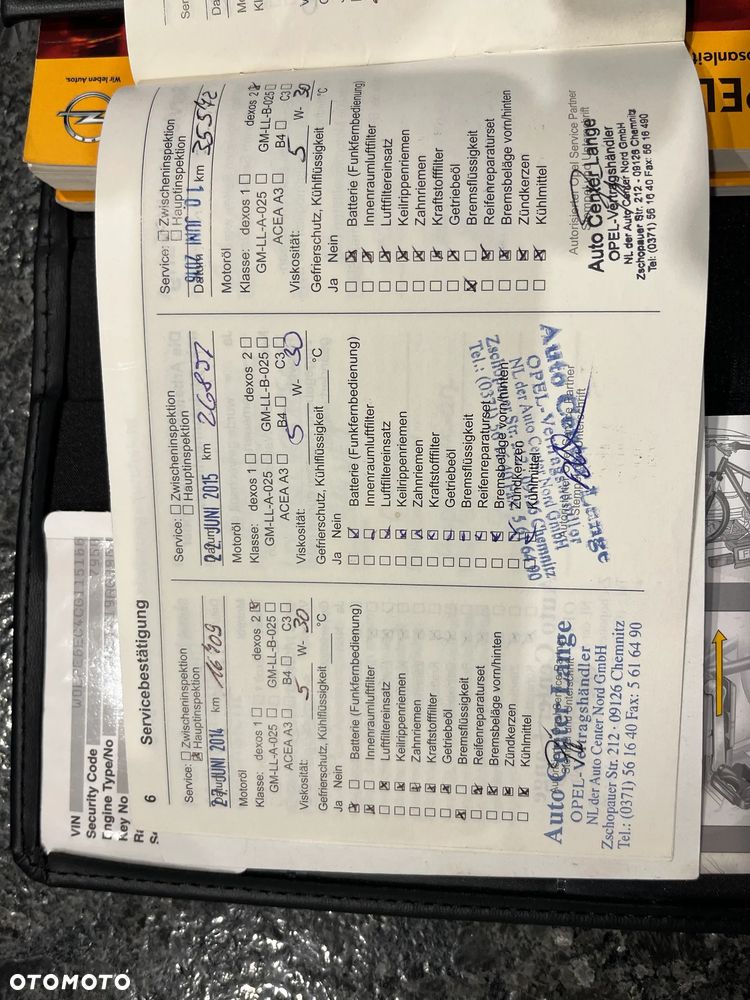 VIN
Security Code
Engine Type/No
Key No
6 Servicebestätigung
Service: Zwischeninspektion
Hauptinspektion
27. JUNI 2014 km 16709
Motoröl
Klasse: dexos 1 dexos 2
GM-LL-A-025 GM-LL-B-025
ACEA A3 B4 C3
Viskosität: 5 W- 30
Gefrierschutz, Kühlflüssigkeit °C
Ja Nein
Batterie (Funkfernbedienung)
Innenraumluftfilter
Luftfiltereinsatz
Keilrippenriemen
Zahnriemen
Kraftstofffilter
Getriebeöl
Bremsflüssigkeit
Reifenreparaturset
Bremsbeläge vorn/hinten
Zündkerzen
Kühlmittel
Auto Center Lange
OPEL-Vertragshändler
NL der Auto Center Nord GmbH
Zschopauer Str. 212 - 09126 Chemnitz
Tel.: (0371) 56 16 40 Fax: 5 61 64 90
Service: Zwischeninspektion
Hauptinspektion
22. JUNI 2015 km 26857
Motoröl
Klasse: dexos 1 dexos 2
GM-LL-A-025 GM-LL-B-025
ACEA A3 B4 C3
Viskosität: 5 W- 30
Gefrierschutz, Kühlflüssigkeit °C
Ja Nein
Batterie (Funkfernbedienung)
Innenraumluftfilter
Luftfiltereinsatz
Keilrippenriemen
Zahnriemen
Kraftstofffilter
Getriebeöl
Bremsflüssigkeit
Reifenreparaturset
Bremsbeläge vorn/hinten
Zündkerzen
Kühlmittel
Service: Zwischeninspektion
Hauptinspektion
Datum 10. JUNI 2016 km 35542
Motoröl
Klasse: dexos 1 dexos 2
GM-LL-A-025 GM-LL-B-025
ACEA A3 B4 C3
Viskosität: 5 W- 30
Gefrierschutz, Kühlflüssigkeit °C
Ja Nein
Batterie (Funkfernbedienung)
Innenraumluftfilter
Luftfiltereinsatz
Keilrippenriemen
Zahnriemen
Kraftstofffilter
Getriebeöl
Bremsflüssigkeit
Reifenreparaturset
Bremsbeläge vorn/hinten
Zündkerzen
Kühlmittel
Autorisierter Opel Service Partner
Auto Center Lange
OPEL-Vertragshändler
NL der Auto Center Nord GmbH
Zschopauer Str. 212 - 09126 Chemnitz
Tel: (0371) 56 16 40 Fax: 56 16 490
Wir leben Autos.
OTOMOTO